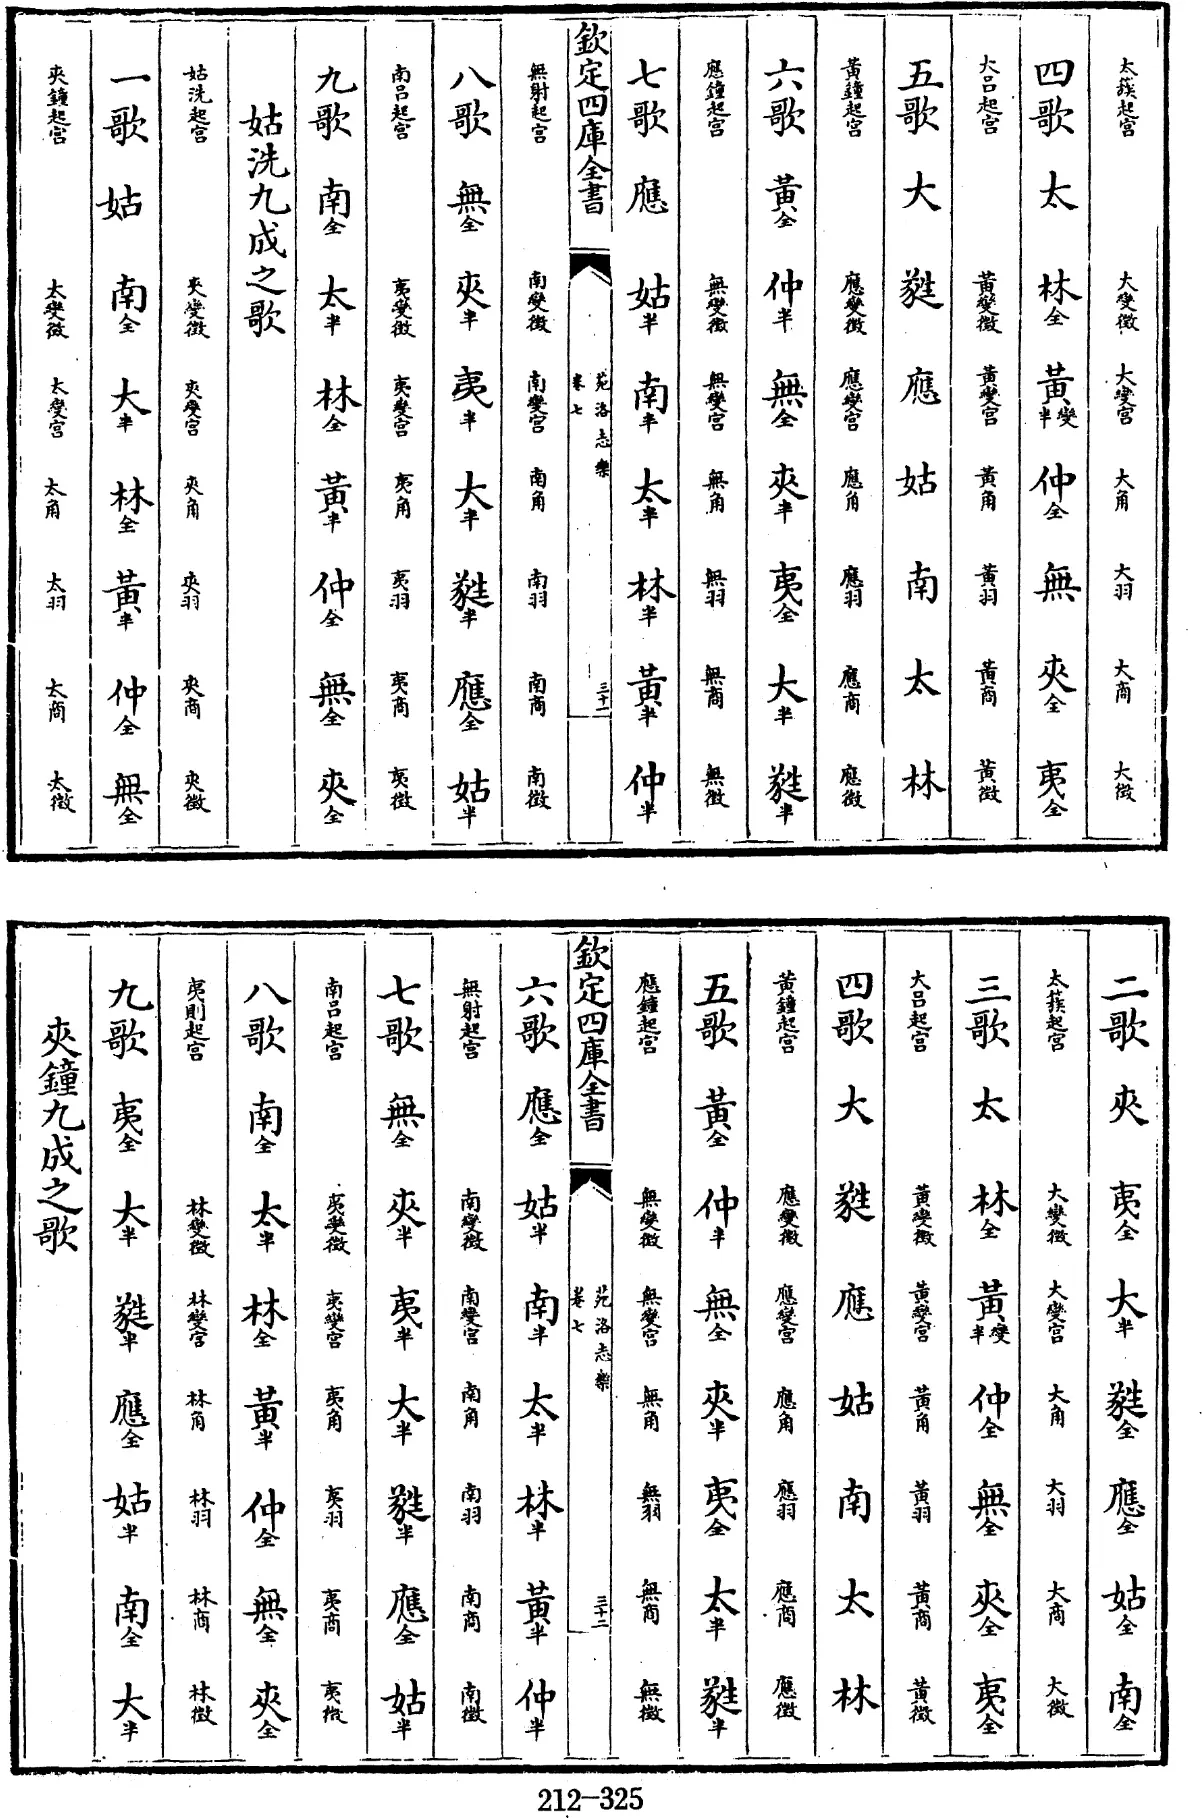 太蔟起宮 大變徵 大變宮 大角 大羽 大商 大徵
四歌 太 林全 黃變半 仲全 無 夾全 夷全
大呂起宮 黃變徵 黃變宮 黃角 黃羽 黃商 黃徵
五歌 大 蕤 應 姑 南 太 林
黃鐘起宮 應變徵 應變宮 應角 應羽 應商 應徵
六歌 黃全 仲半 無全 夾半 夷全 大半 蕤半
應鐘起宮 無變徵 無變宮 無角 無羽 無商 無徵
七歌 應 姑半 南半 太半 林半 黃半 仲半
欽定四庫全書 苑洛志樂 卷七 三十一
無射起宮 南變徵 南變宮 南角 南羽 南商 南徵
八歌 無全 夾半 夷半 大半 蕤半 應全 姑半
南呂起宮 夷變徵 夷變宮 夷角 夷羽 夷商 夷徵
九歌 南全 太半 林全 黃半 仲全 無全 夾全
姑洗九成之歌
姑洗起宮 夾變徵 夾變宮 夾角 夾羽 夾商 夾徵
一歌 姑 南全 大半 林全 黃半 仲全 無全
夾鐘起宮 太變徵 太變宮 太角 太羽 太商 太徵
二歌 夾 夷全 大半 蕤全 應全 姑全 南全
太蔟起宮 大變徵 大變宮 大角 大羽 大商 大徵
三歌 太 林全 黃變半 仲全 無全 夾全 夷全
大呂起宮 黃變徵 黃變宮 黃角 黃羽 黃商 黃徵
四歌 大 蕤 應 姑 南 太 林
黃鐘起宮 應變徵 應變宮 應角 應羽 應商 應徵
五歌 黃全 仲半 無全 夾半 夷全 太半 蕤半
應鐘起宮 無變徵 無變宮 無角 無羽 無商 無徵
欽定四庫全書 苑洛志樂 卷七 三十二
六歌 應全 姑半 南半 太半 林半 黃半 仲半
無射起宮 南變徵 南變宮 南角 南羽 南商 南徵
七歌 無全 夾半 夷半 大半 蕤半 應全 姑半
南呂起宮 夷變徵 夷變宮 夷角 夷羽 夷商 夷徵
八歌 南全 太半 林全 黃半 仲全 無全 夾全
夷則起宮 林變徵 林變宮 林角 林羽 林商 林徵
九歌 夷全 大半 蕤半 應全 姑半 南全 大半
夾鐘九成之歌
212-325